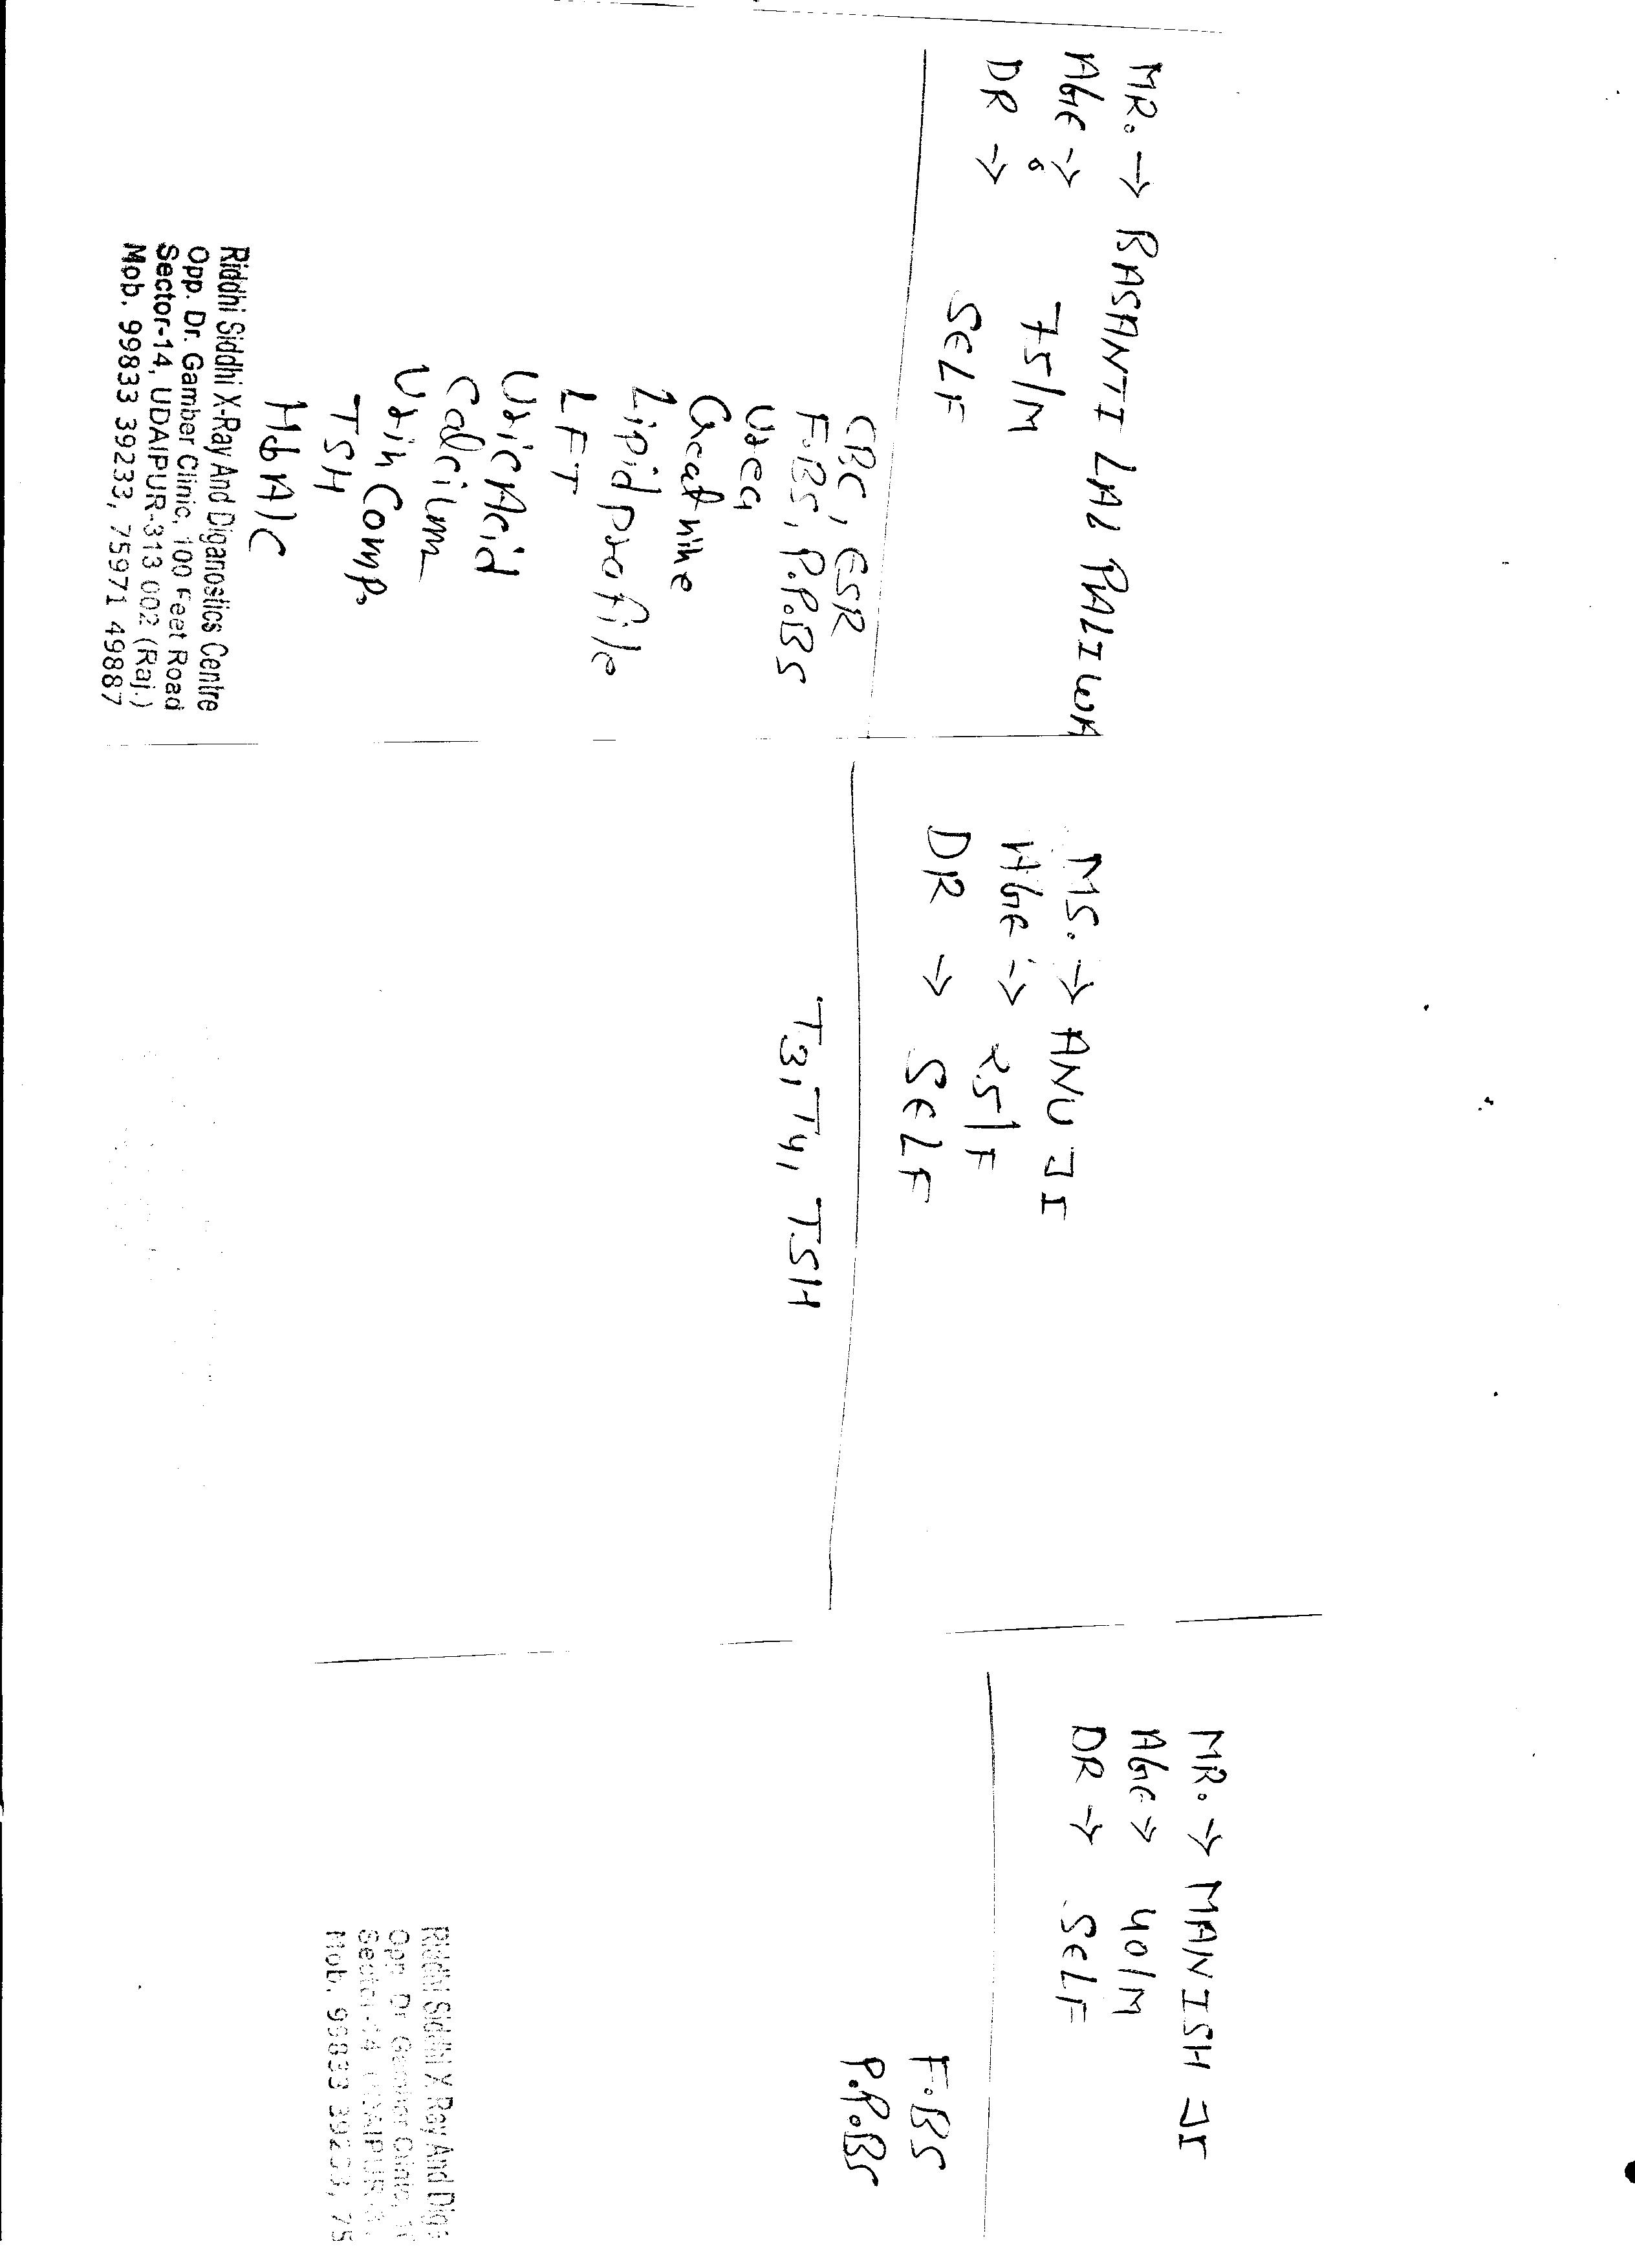 MR. → BASANTI LAL PALIWA
AGE → 75/M
DR → SELF
CBC, ESR
F.BS, P.P.BS
Urea
Creatnine
Lipid profile
LFT
Uric Acid
Calcium
Urin Comp.
TSH
HbA1C
Riddhi Siddhi X-Ray And Diganostics Centre
Opp. Dr. Gamber Clinic, 100 Feet Road
Sector-14, UDAIPUR-313 002 (Raj.)
Mob. 99833 39233, 75971 49887
MS. → ANU JI
AGE → 25/F
DR → SELF
T3, T4, TSH
MR. → MANISH JI
AGE → 40/M
DR → SELF
F.BS
P.P.BS
Riddhi Siddhi X Ray And Diga
Opp. Dr. Gamber Clinic, 1
Sector-14 UDAIPUR-3
Mob. 99833 39233, 75